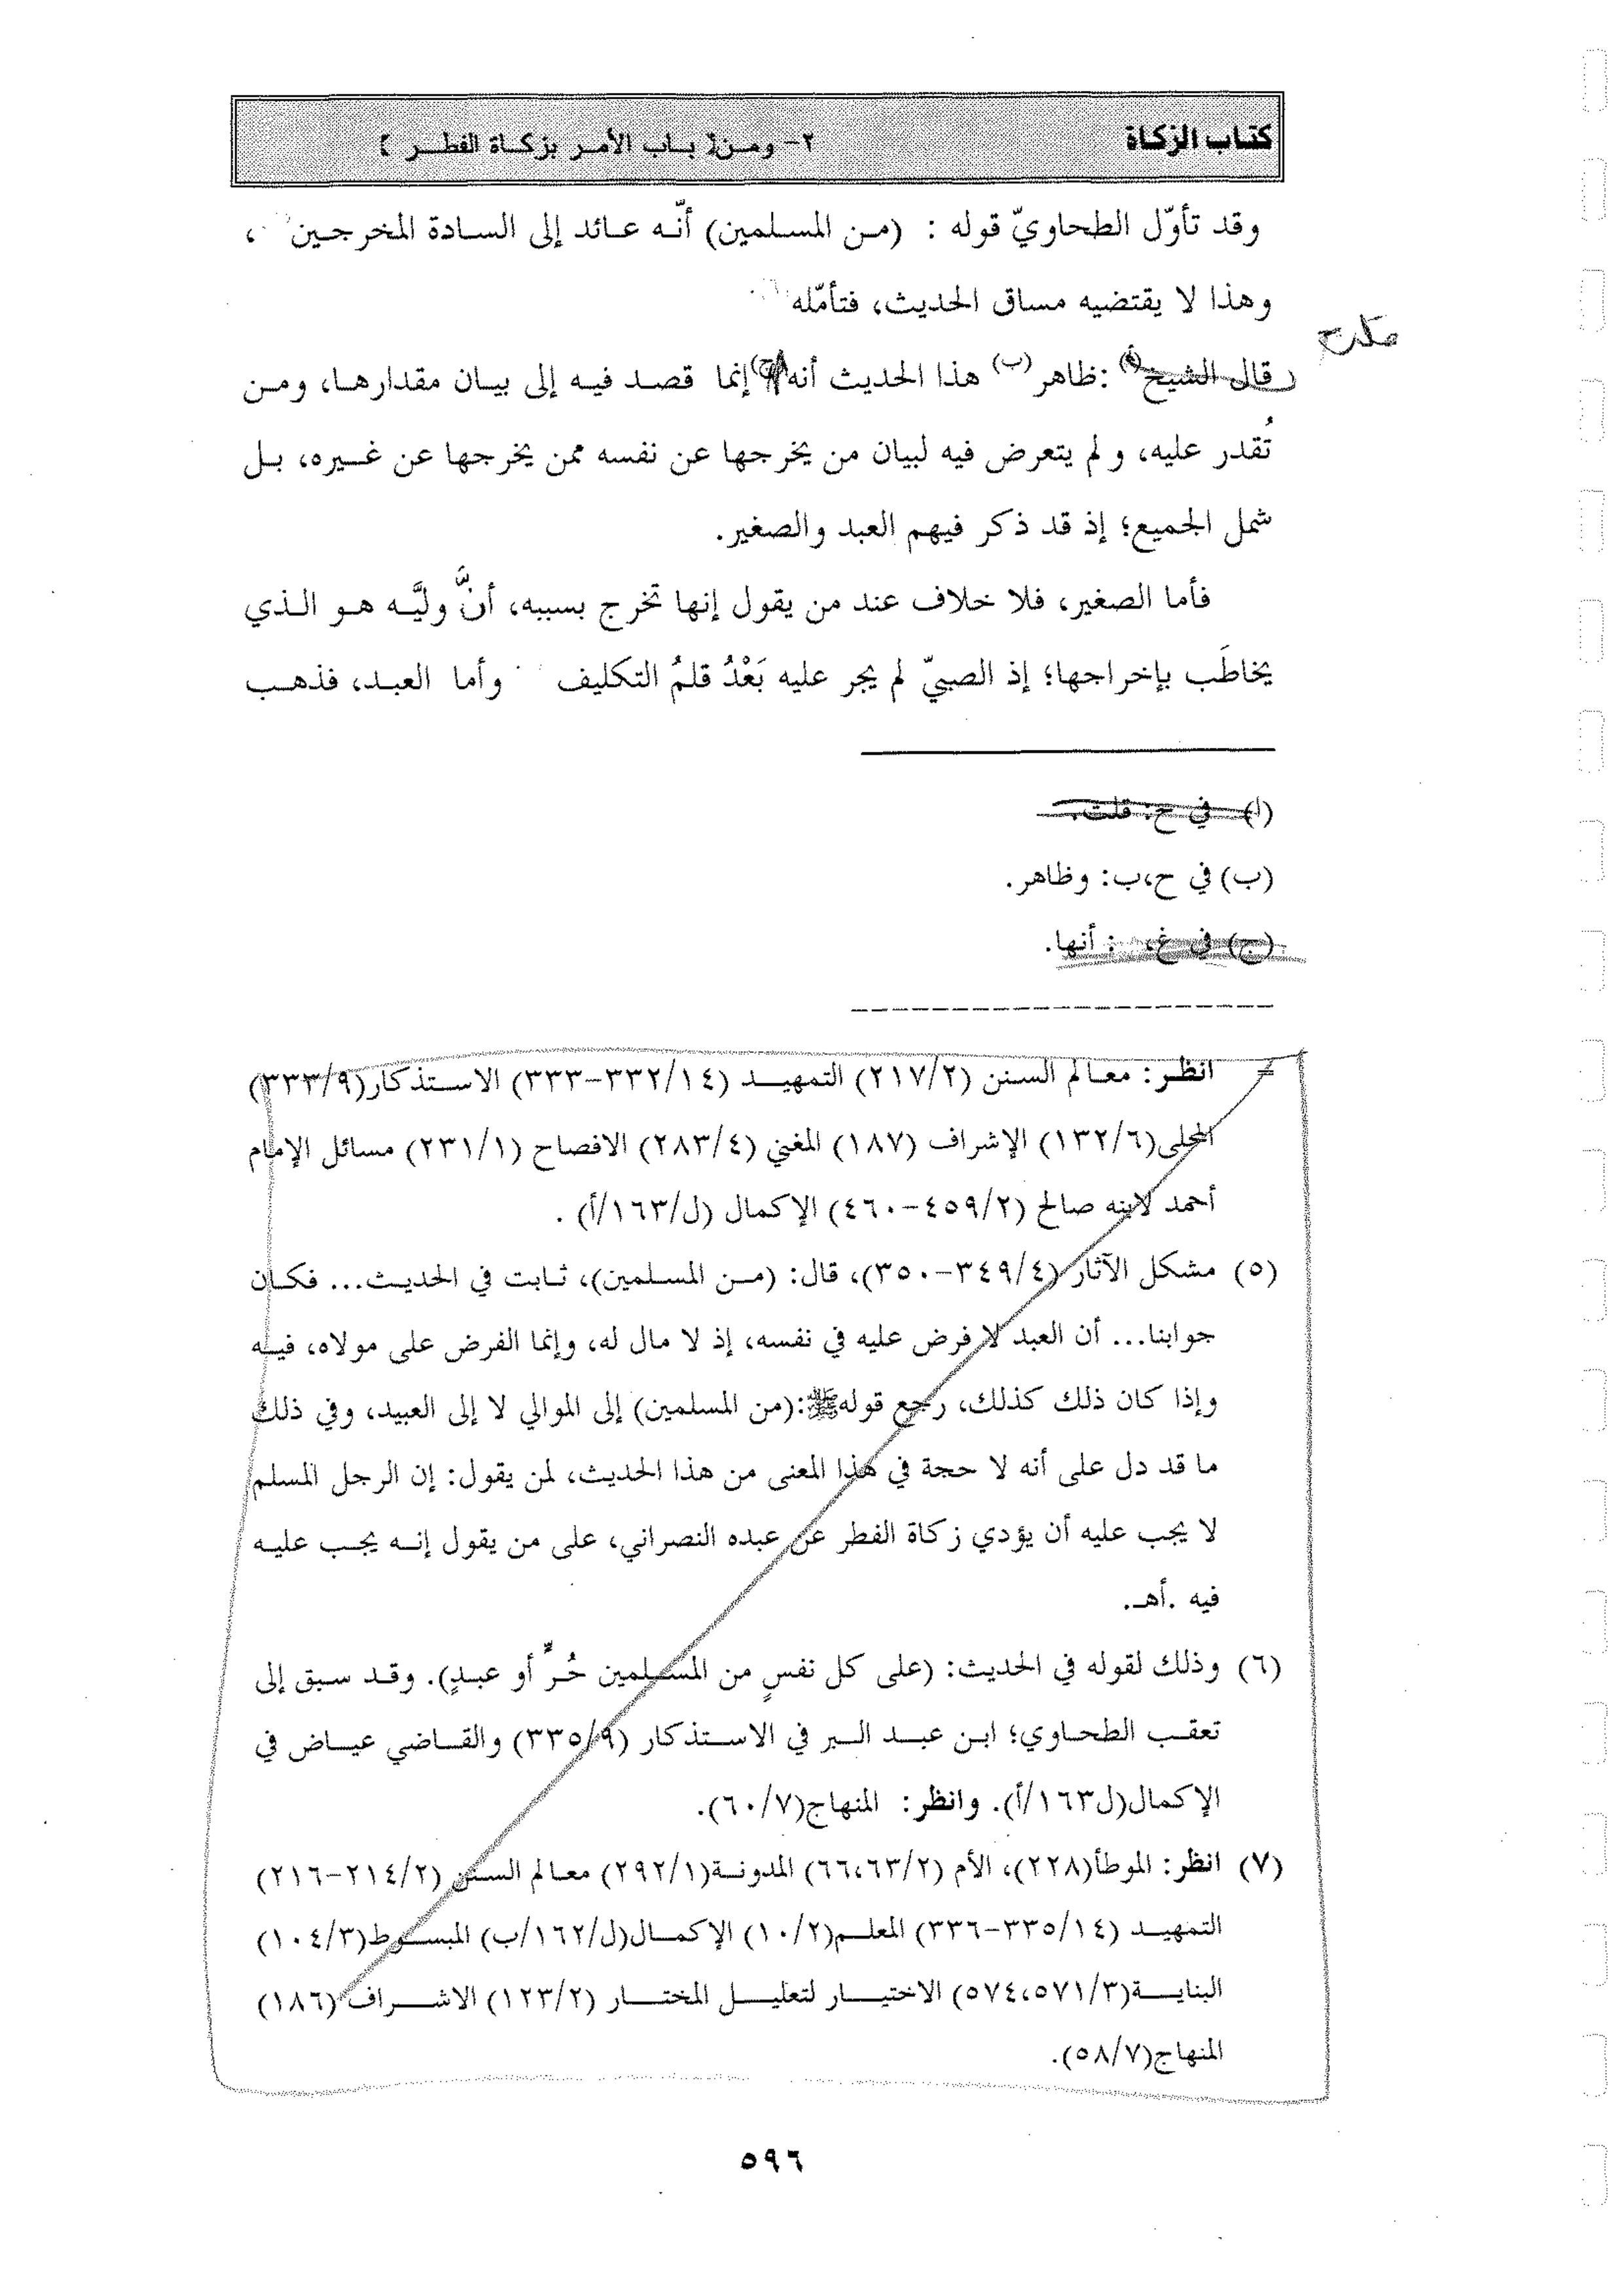 كتاب الزكاة
٢- ومن [ باب الأمر بزكاة الفطر ]
وقد تأوّل الطحاويّ قوله : (من المسلمين) أنّه عائد إلى السادة المخرجين ،
وهذا لا يقتضيه مساق الحديث، فتأمّله
قال الشيخ(أ) :ظاهر(ب) هذا الحديث أنه(ج) إنما قصد فيه إلى بيان مقدارها، ومن
تُقدر عليه، و لم يتعرض فيه لبيان من يخرجها عن نفسه ممن يخرجها عن غيره، بل
شمل الجميع؛ إذ قد ذكر فيهم العبد والصغير.
فأما الصغير، فلا خلاف عند من يقول إنها تخرج بسببه، أنَّ وليَّه هو الذي
يخاطَب بإخراجها؛ إذ الصبيّ لم يجر عليه بَعْدُ قلمُ التكليف وأما العبد، فذهب
(أ) في ح: قلت.
(ب) في ح،ب: وظاهر.
(ج) في غ، : أنها.
= انظر: معالم السنن (٢١٧/٢) التمهيد (٣٣٢/١٤-٣٣٣) الاستذكار(٣٣٣/٩)
المحلى(١٣٢/٦) الإشراف (١٨٧) المغني (٢٨٣/٤) الافصاح (٢٣١/١) مسائل الإمام
أحمد لابنه صالح (٤٥٩/٢-٤٦٠) الإكمال (ل/١٦٣/أ) .
(٥) مشكل الآثار (٣٤٩/٤-٣٥٠)، قال: (من المسلمين)، ثابت في الحديث... فكان
جوابنا... أن العبد لا فرض عليه في نفسه، إذ لا مال له، وإنما الفرض على مولاه، فيه
وإذا كان ذلك كذلك، رجع قوله ﷺ:(من المسلمين) إلى الموالي لا إلى العبيد، وفي ذلك
ما قد دل على أنه لا حجة في هذا المعنى من هذا الحديث، لمن يقول: إن الرجل المسلم
لا يجب عليه أن يؤدي زكاة الفطر عن عبده النصراني، على من يقول إنه يجب عليه
فيه .أهـ.
(٦) وذلك لقوله في الحديث: (على كل نفسٍ من المسلمين حُرٍّ أو عبدٍ). وقد سبق إلى
تعقب الطحاوي؛ ابن عبد البر في الاستذكار (٣٣٥/٩) والقاضي عياض في
الإكمال(ل١٦٣/أ). وانظر: المنهاج(٦٠/٧).
(٧) انظر: الموطأ(٢٢٨)، الأم (٦٦،٦٣/٢) المدونة(٢٩٢/١) معالم السنن (٢١٤/٢-٢١٦)
التمهيد (٣٣٥/١٤-٣٣٦) المعلم(١٠/٢) الإكمال(ل/١٦٢/ب) المبسوط(١٠٤/٣)
البناية(٥٧٤،٥٧١/٣) الاختيار لتعليل المختار (١٢٣/٢) الاشراف (١٨٦)
المنهاج(٥٨/٧).
٥٩٦